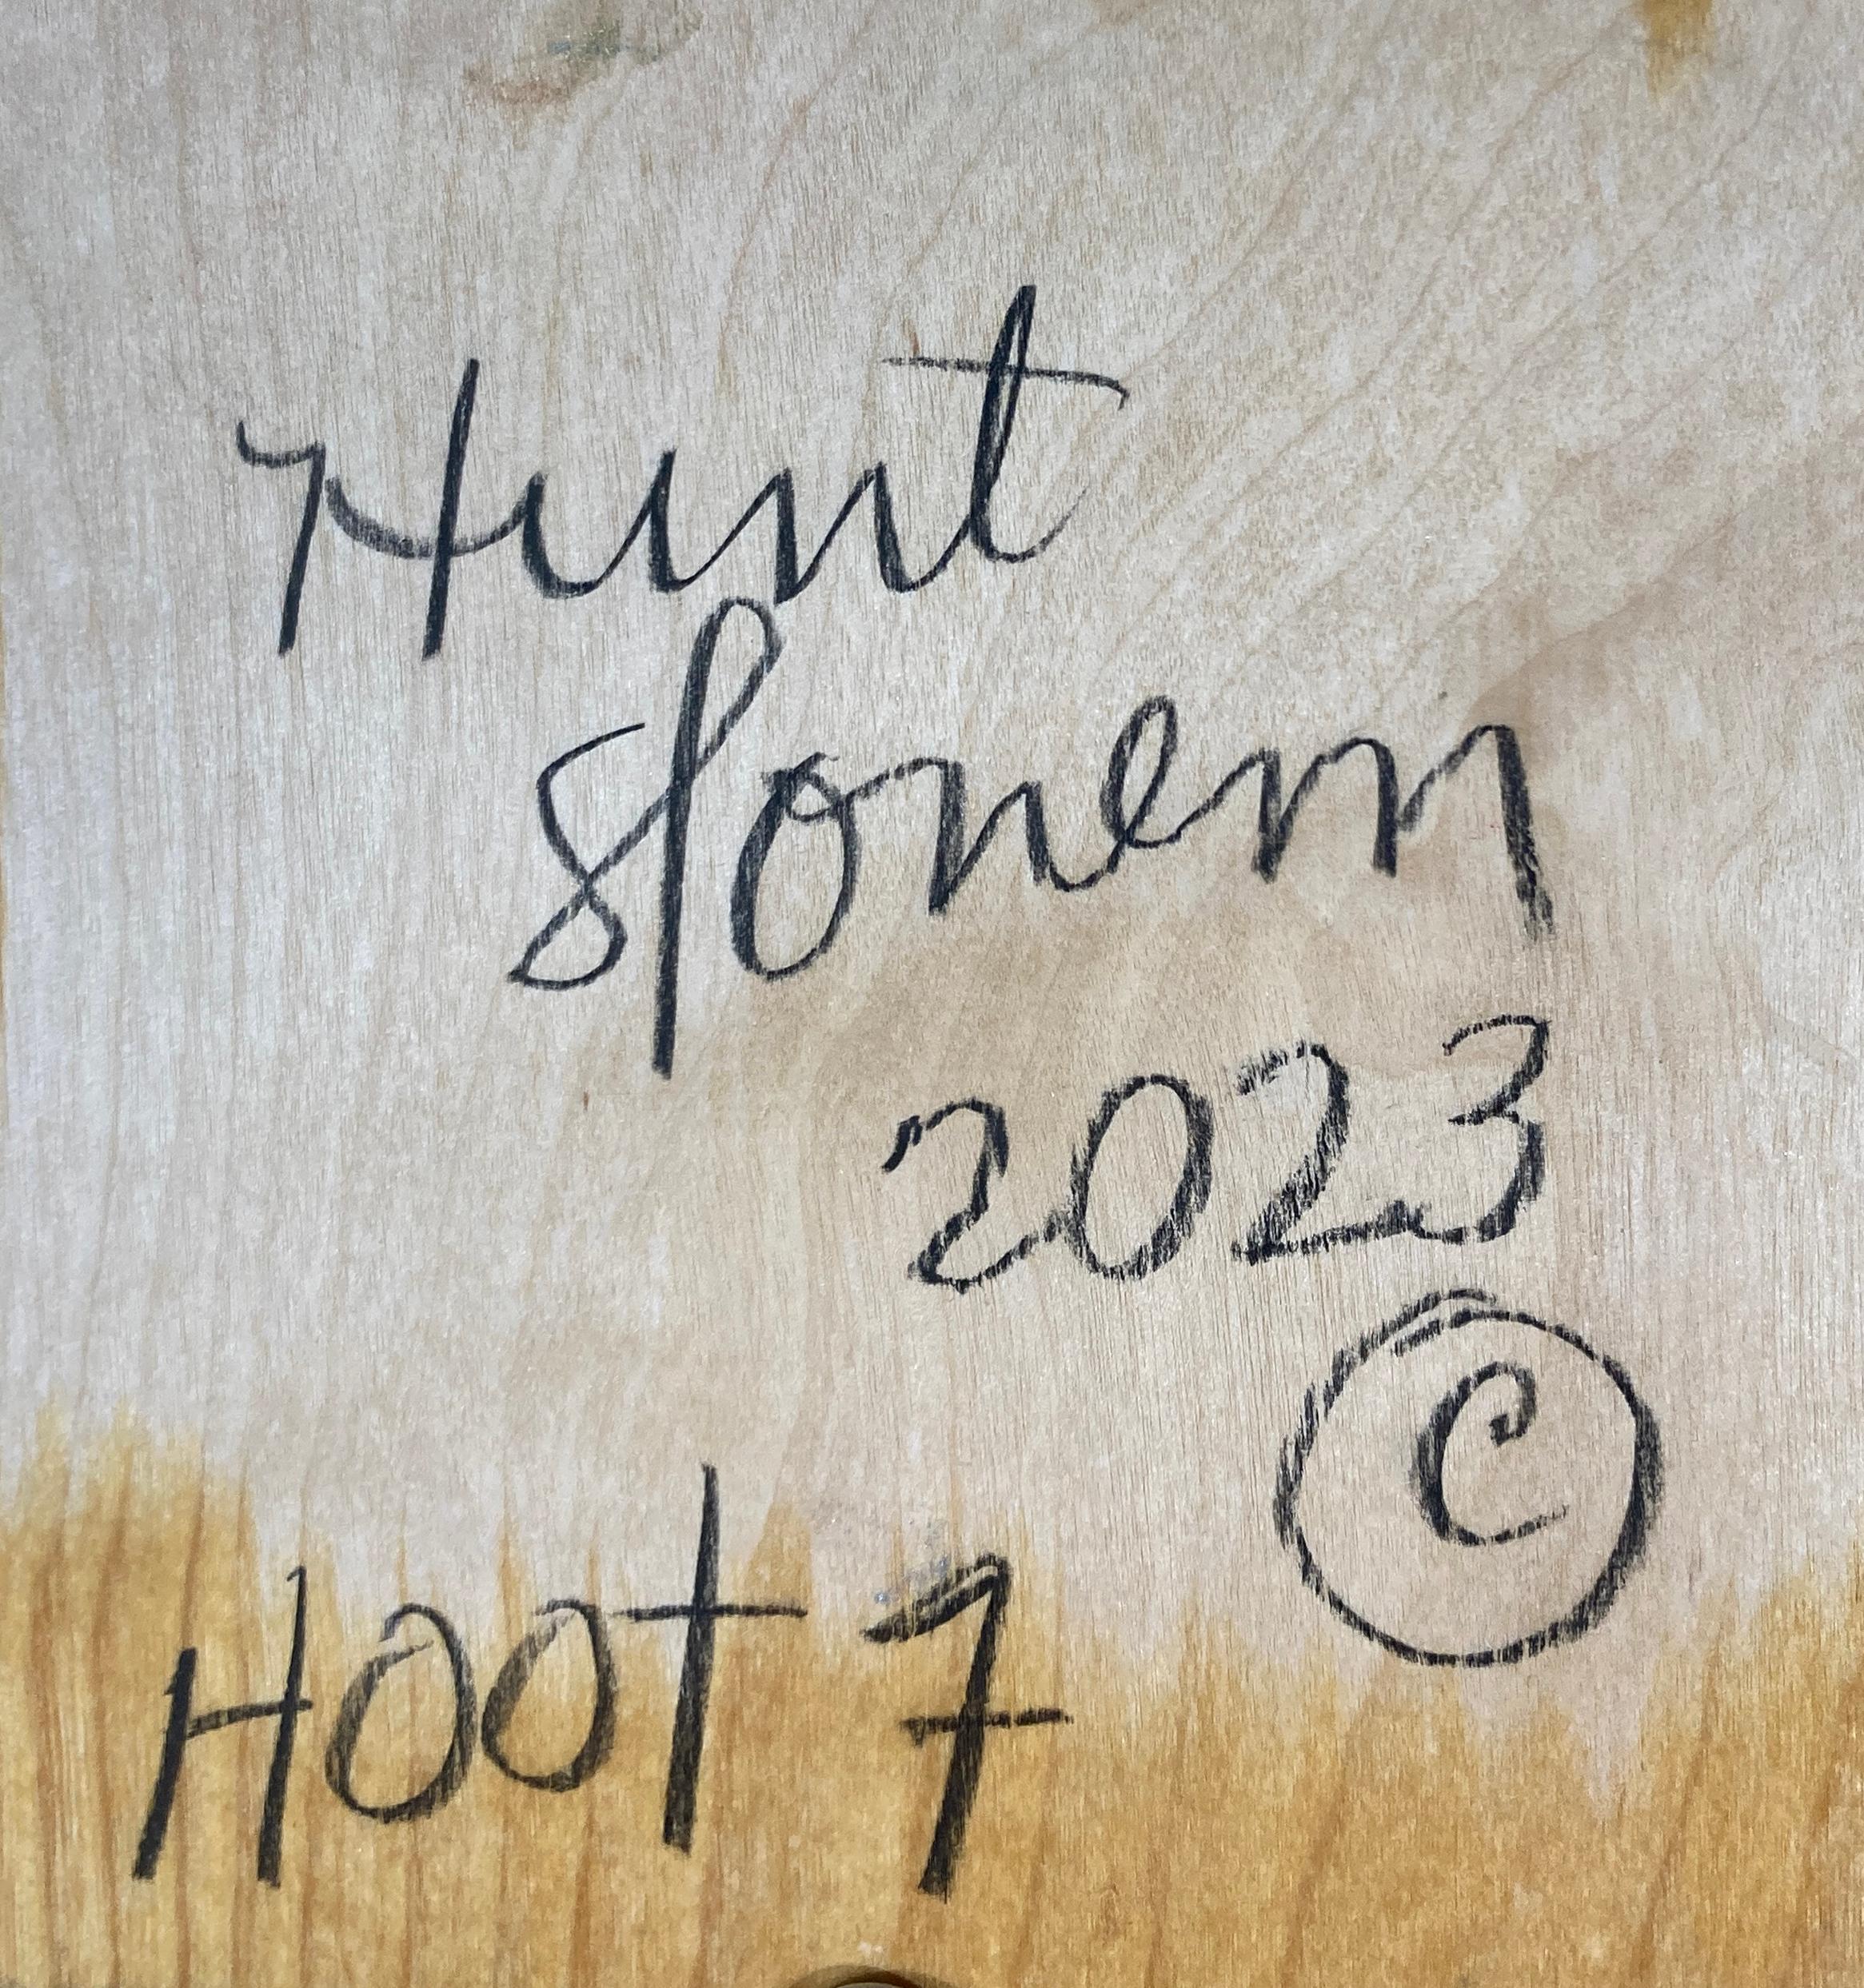 Hunt
Slonem
2023
©
Hoot 7